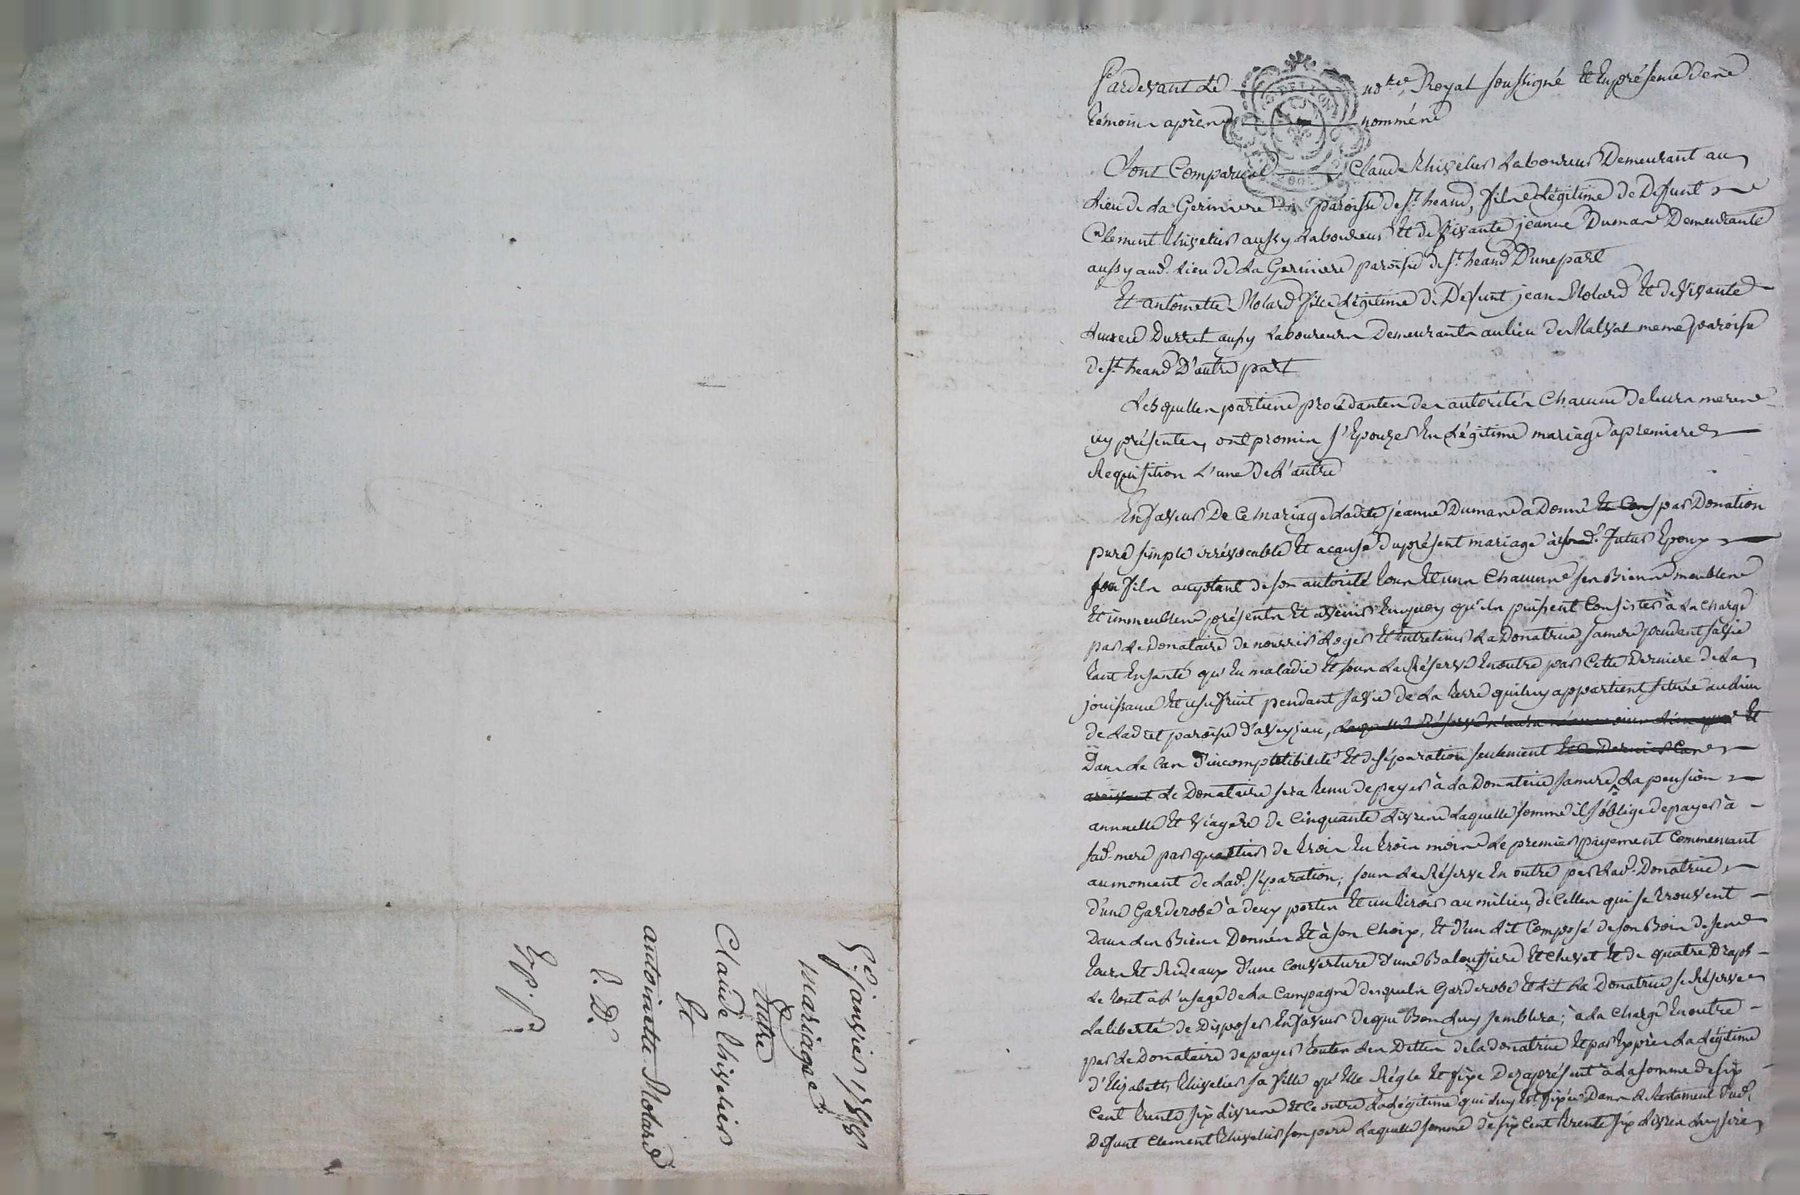 Pardevant Le nore. Royal soussigné Et Enprésence dene
témoins après nommén
Sont Comparus Claude Thivelier Laboureur Demeurant au
Lieu de La Geriniere paroisse de st. heand, filn Légitime de Defunt
Clement thivelier aussy Laboureur Et de Vivante jeanne Dumas Demeurante
aussy aud. Lieu de La Geriniere paroisse de st. heand D'une part
Et antoinette Molard fille Légitime de Defunt jean Molard Et de Vivante
Durret aussy Laboureurn Demeurants au lieu de Malval meme paroisse
de st. heand D'autre part
Lesquellen partiene procédanten den autoritén Chacune de leurn merene
icy présenten, ont promin s'Epouzer En Légitime mariage a premiere
Requisition L'une de L'autre
En faveur De Ce mariage Ladite jeanne Dumas a Donné Et Con par Donation
pure simple irrévocable Et acause du présent mariage à sond. futur Epoux
son filn acceptant de son autorité toun Et un Chacune sen Biene meublene
Et immeublene présents Et avenir Enquoy qu'iln puissent Consister à La Charge
par Le Donataire de nourrir Loger Et Entretenir La Donatrice sa mere pendant sa vie
tant En santé qu'En maladie Et soun La Réserve En outre par Cette Derniere de La
jouissance Et usufruit pendant sa vie de La terre qui luy appartient située au Lieu
de Lad et paroisse d'aveyzieu, Et
Dans Le Cas D'incompatibilité Et de séparation seulement
Le Donataire sera tenu de payer à La Donatrice sa mere La pension
annuelle Et Viagère de Cinquante Livrene Laquelle somme il s'oblige de payer à
sad. mere par quartier de troin En troin moine Le premier payement Commencant
au moment de Lad. séparation; soun La Réserve En outre par Lad. Donatrice
d'une Garderobe à deux porten Et un tiroir au milieu, de Cellen qui se trouvent
Dans Len Biene Donnén Et à son Choix, Et d'un Lit Composé de son Boin de sene
tourn Et Rideaux d'une Couverture d'une Baloussiere Et Chevet Et de quatre Drapn
Le tout à L'usage de La Campagne denqueln Garderobe Et Lit La Donatrice se Réserve
La liberté de Disposer En faveur de qui Bon Luy semblera; à La Charge En outre
par Le Donataire de payer touten Len Detten de la donatrice Et par Exprèn La Légitime
d'Elizabeth Thivelier sa fille qu'Elle Régle Et fixe Dezaprésent à La somme de six
Cent trente six Livrene Et Ce outre La Légitime qui Luy Est fixée Dans Le testament dud.
Defunt Clement thivelier son pere Laquelle somme de six Cent trente six Livren
janvier 1788
mariage
Entre
Claude Thivelier
Et
antoinette Molard